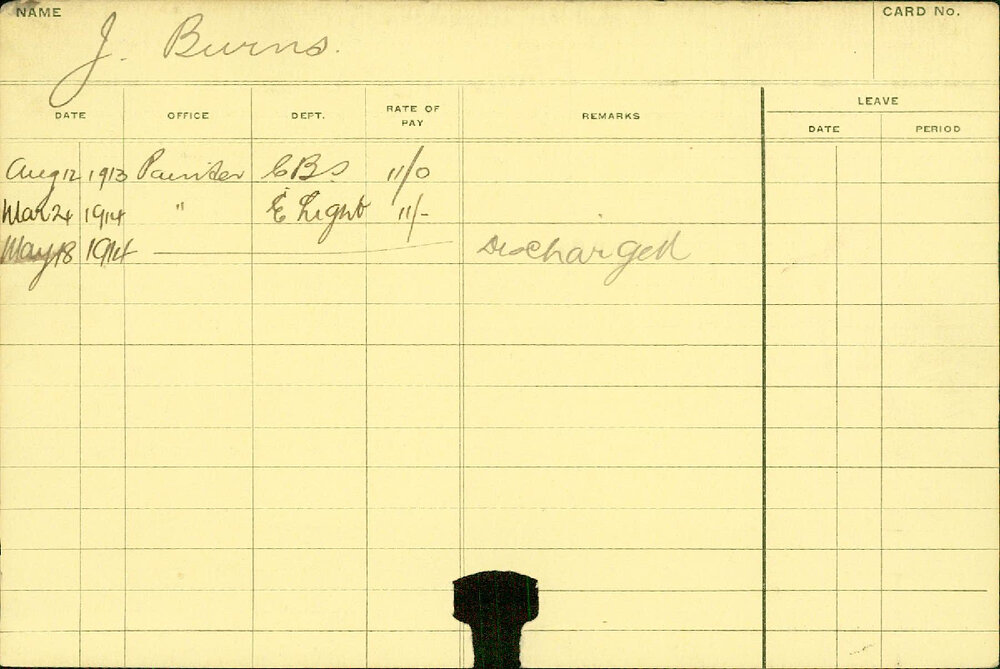 NAME
CARD No.
J. Burns.
DATE OFFICE DEPT. RATE OF PAY REMARKS LEAVE
DATE PERIOD
Aug 12 1913 Painter CBS 11/0
Mar 24 1914 " E Light 11/-
May 18 1914 Discharged